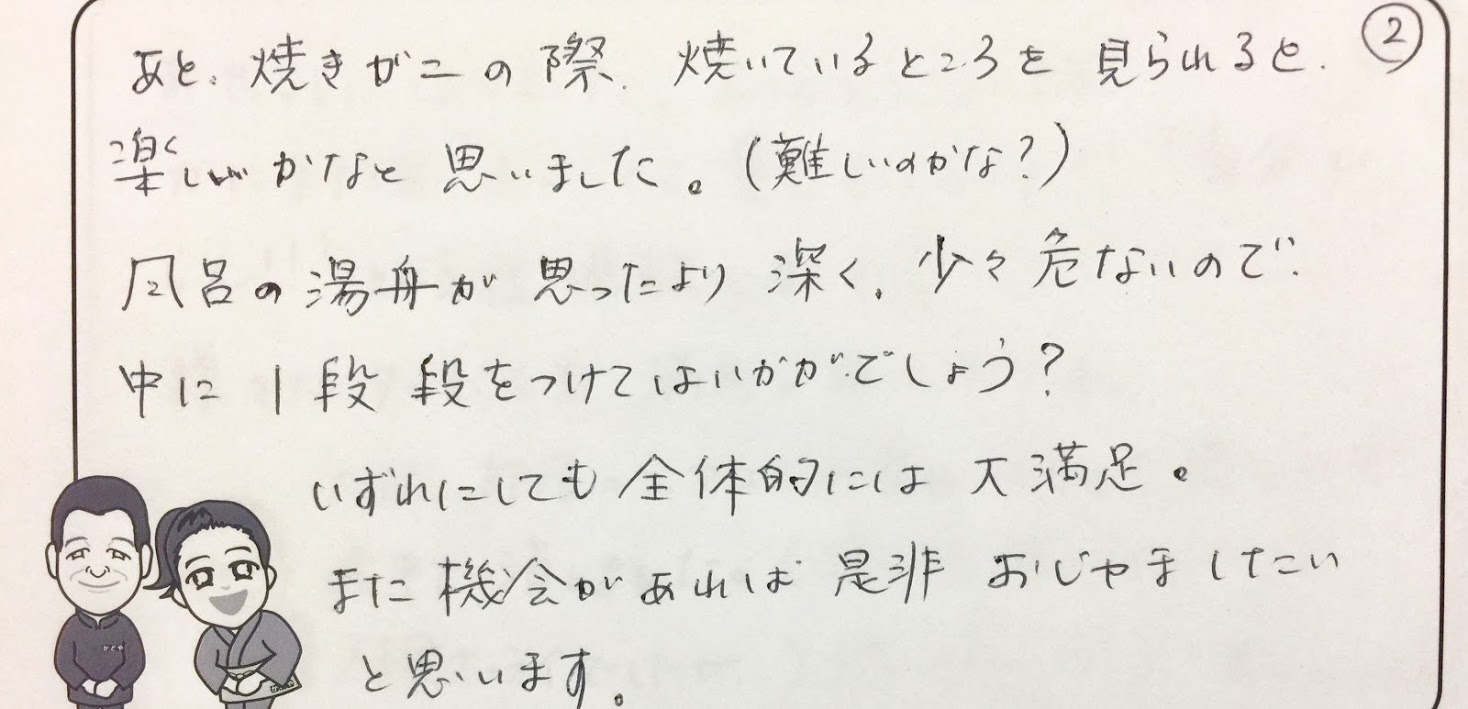 ②
あと、焼きがニの際、焼いているところを見られると、
楽しいかなと思いました。(難しいのかな?)
風呂の湯舟が思ったより深く、少々危ないので、
中に1段段をつけてはいかがでしょう?
いずれにしても全体的には大満足。
また機会があれば是非おじゃましたい
と思います。